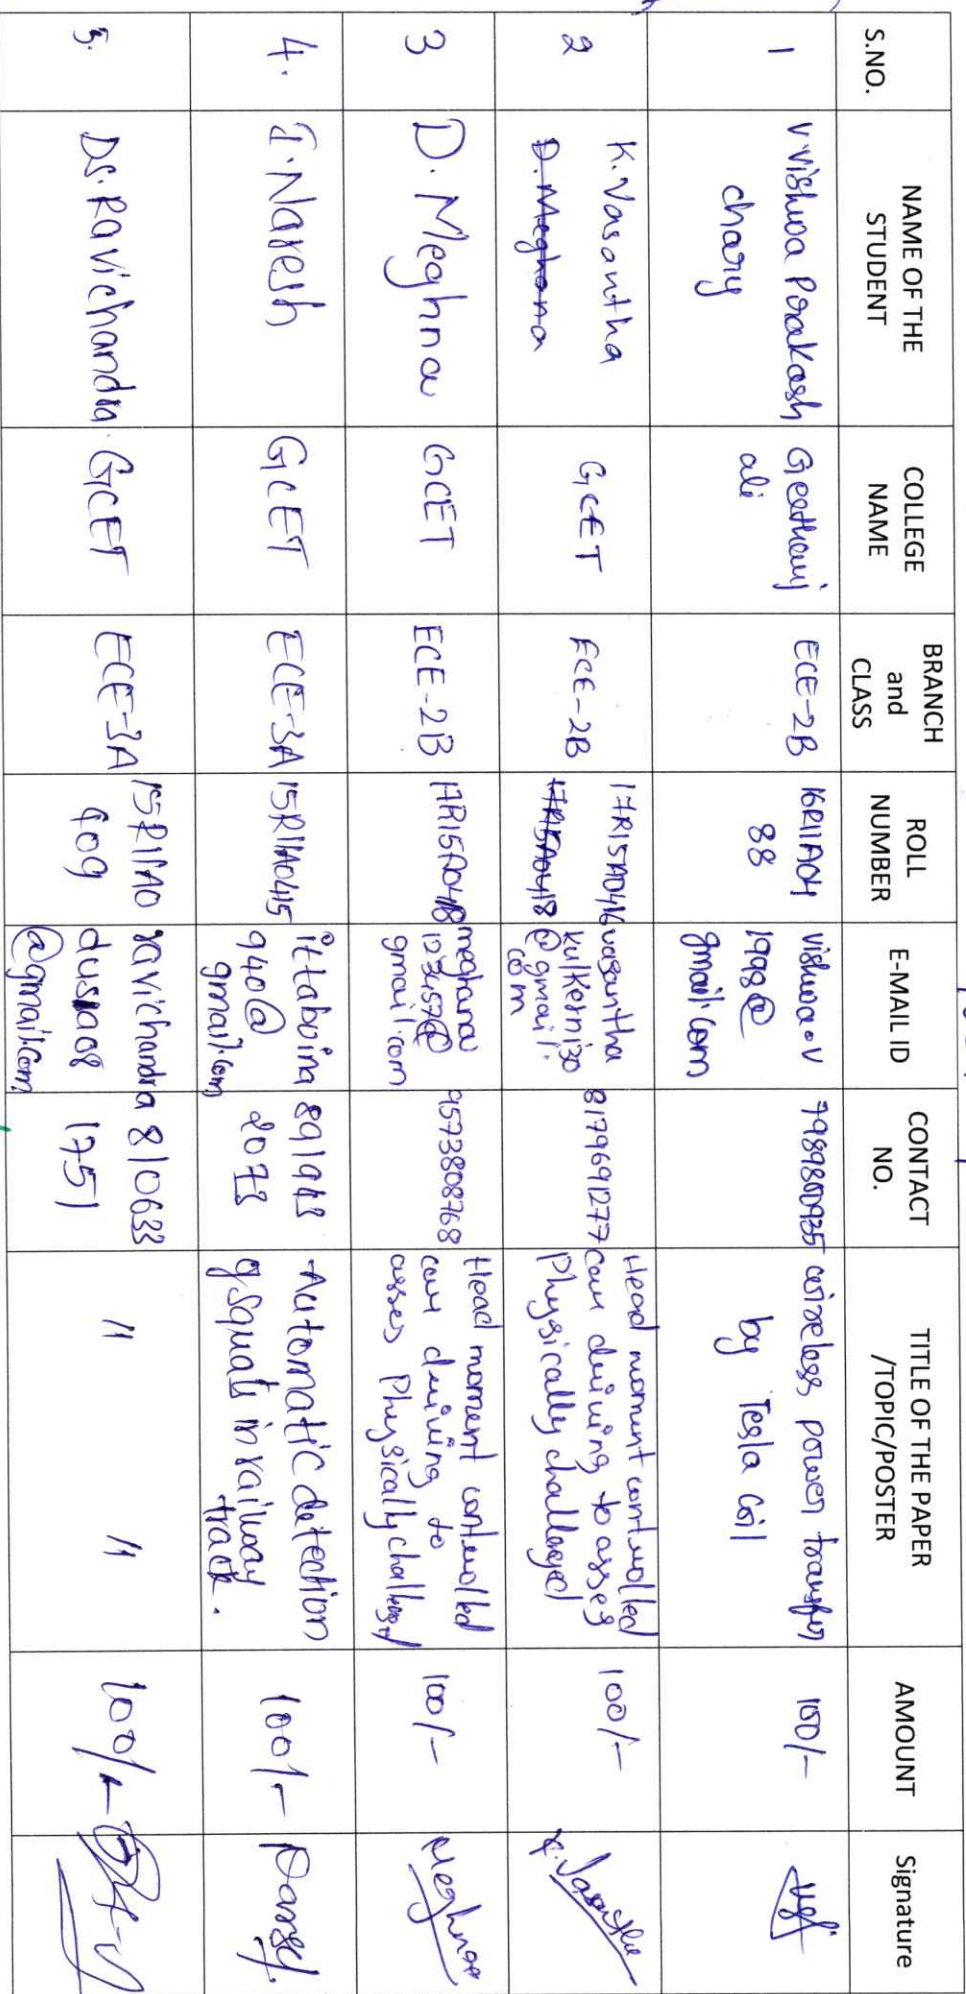 S.NO.
NAME OF THE
STUDENT
COLLEGE
NAME
BRANCH
and
CLASS
ROLL
NUMBER
E-MAIL ID
CONTACT
NO.
TITLE OF THE PAPER
/TOPIC/POSTER
AMOUNT
Signature
1
V.Vishwa Prakash
chary
Geethanj
ali
ECE-2B
16R11A04
88
vishwa.v
1998@
gmail.com
wireless power transfer
by Tesla Coil
100/-
2
K.Vasantha
D.Meghana
GCET
ECE-2B
17R15A0416
17R15A0418
vasantha
kulkerni30
@gmail.
com
8179691277
Head moment controlled
car driving to asses
Physically challenged
100/-
K.Vasantha
3
D.Meghna
GCET
ECE-2B
17R15A0418
meghana
123457@
gmail.com
9573808768
Head moment controlled
car driving to
asses Physically challenged
100/-
Meghnaa
4.
I.Naresh
GCET
ECE-3A
15R11A0415
ittaboina
940@
gmail.com
891943
2073
Automatic detection
of squats in railway
track.
100/-
5.
DS.Ravichandra
GCET
ECE-3A
15R11A0
409
ravichandra
dusa08
@gmail.com
810633
1751
" "
100/-